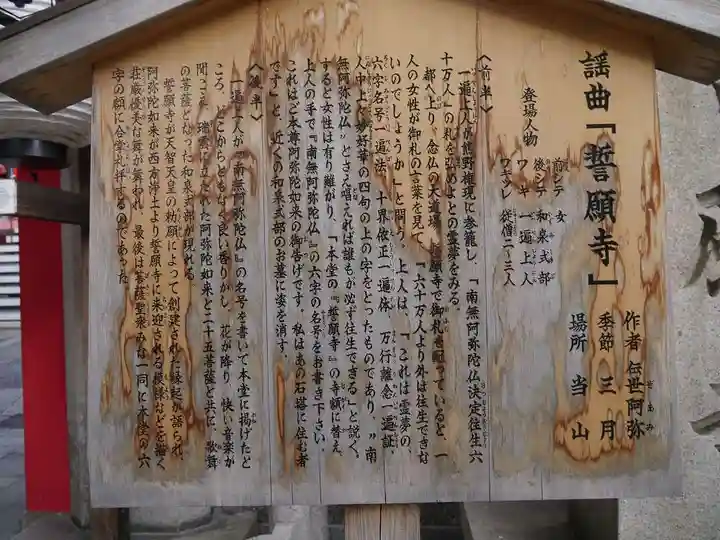 謡曲「誓願寺」
作者 伝世阿弥
季節 三月
場所 当山
登場人物
前シテ 女
後シテ 和泉式部
ワキ 一遍上人
ワキツレ 従僧二〜三人
〈前半〉
一遍上人が熊野権現に参籠し、「南無阿弥陀仏決定往生六
十万人」の札を弘めよとの霊夢をみる。
都へ上り、念仏の大道場、誓願寺で御札を配っていると、一
人の女性が御札の言葉を見て、「六十万人より外は往生できな
いのでしょうか」と問う。上人は、「これは霊夢の、
六字名号一遍法 十界依正一遍体 万行離念一遍証、
人中上々妙好華の四句の上の字をとったものであり、〝南
無阿弥陀仏〟とさえ唱えれば誰もが必ず往生できる」と説く。
すると女性は有り難がり、「本堂の『誓願寺』の寺額に替え、
上人の手で『南無阿弥陀仏』の六字の名号をお書き下さい。
これはご本尊阿弥陀如来の御告げです。私はあの石塔に住む者
です」と、近くの和泉式部のお墓に姿を消す。
〈後半〉
一遍上人が『南無阿弥陀仏』の名号を書いて本堂に掲げたと
ころ、どこからともなく良い香りがし、花が降り、快い音楽が
聞こえ、瑞雲に立たれた阿弥陀如来と二十五菩薩と共に、歌舞
の菩薩となった和泉式部が現れる。
誓願寺が天智天皇の勅願によって創建された縁起が語られ、
阿弥陀如来が西方浄土より誓願寺に来迎される模様などを描く
荘厳優美な舞が舞われ、最後は菩薩聖衆みな一同に本堂の六
字の額に合掌礼拝するのであった。